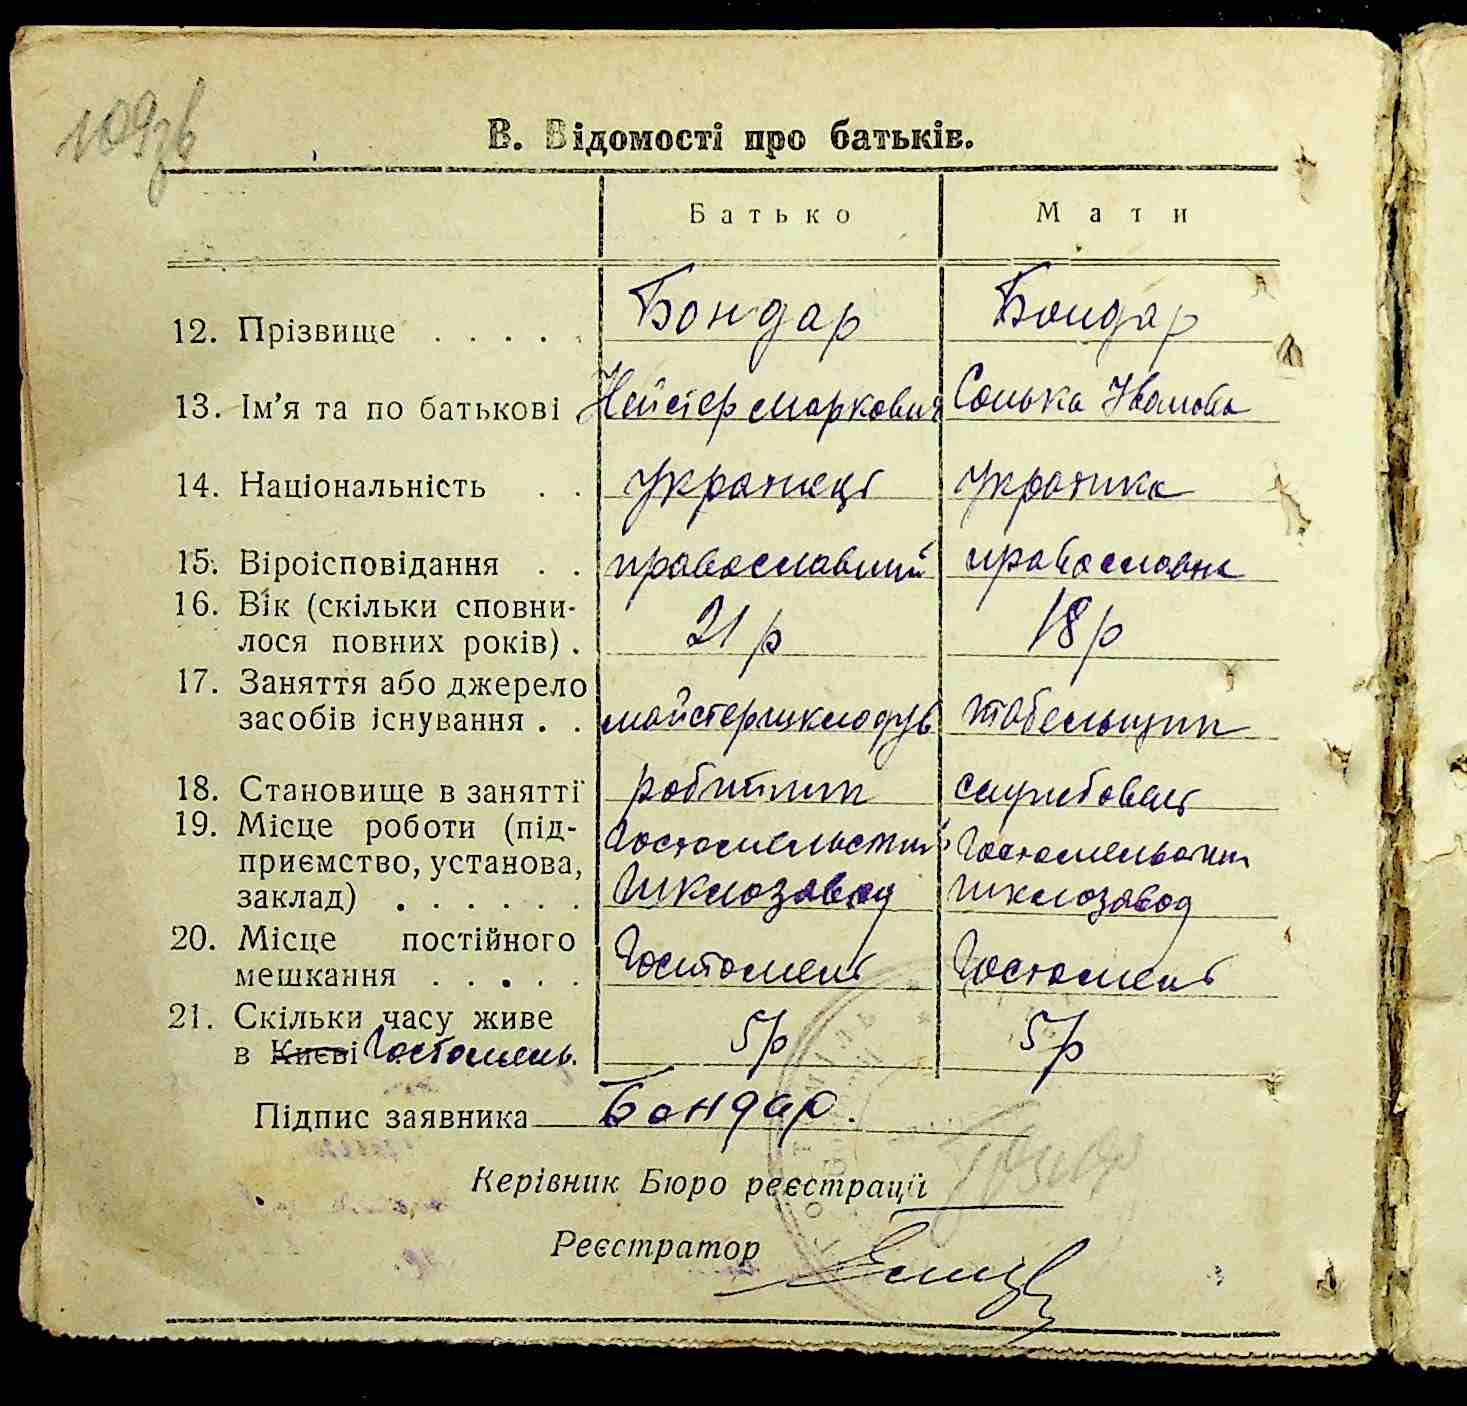 В. Відомості про батьків.
Батько Мати
12. Прізвище . . . . . Бондар Бондар
13. Ім'я та по батькові Маркович Сонька Іванова
14. Національність . . українець українка
15. Віроісповідання . . православний православна
16. Вік (скільки сповни-
лося повних років) . 21 р 18 р
17. Заняття або джерело
засобів існування . . майстер шклодув табельщик
18. Становище в занятті робітник службовець
19. Місце роботи (під- Гостомельский Гостомельский
приємство, установа, шклозавод шклозавод
заклад) . . . . . .
20. Місце постійного
мешкання . . . . . Гостомель Гостомель
21. Скільки часу живе
в Києві Гостомель. 5 р 5 р
Підпис заявника Бондар.
Керівник Бюро реєстрації
Реєстратор